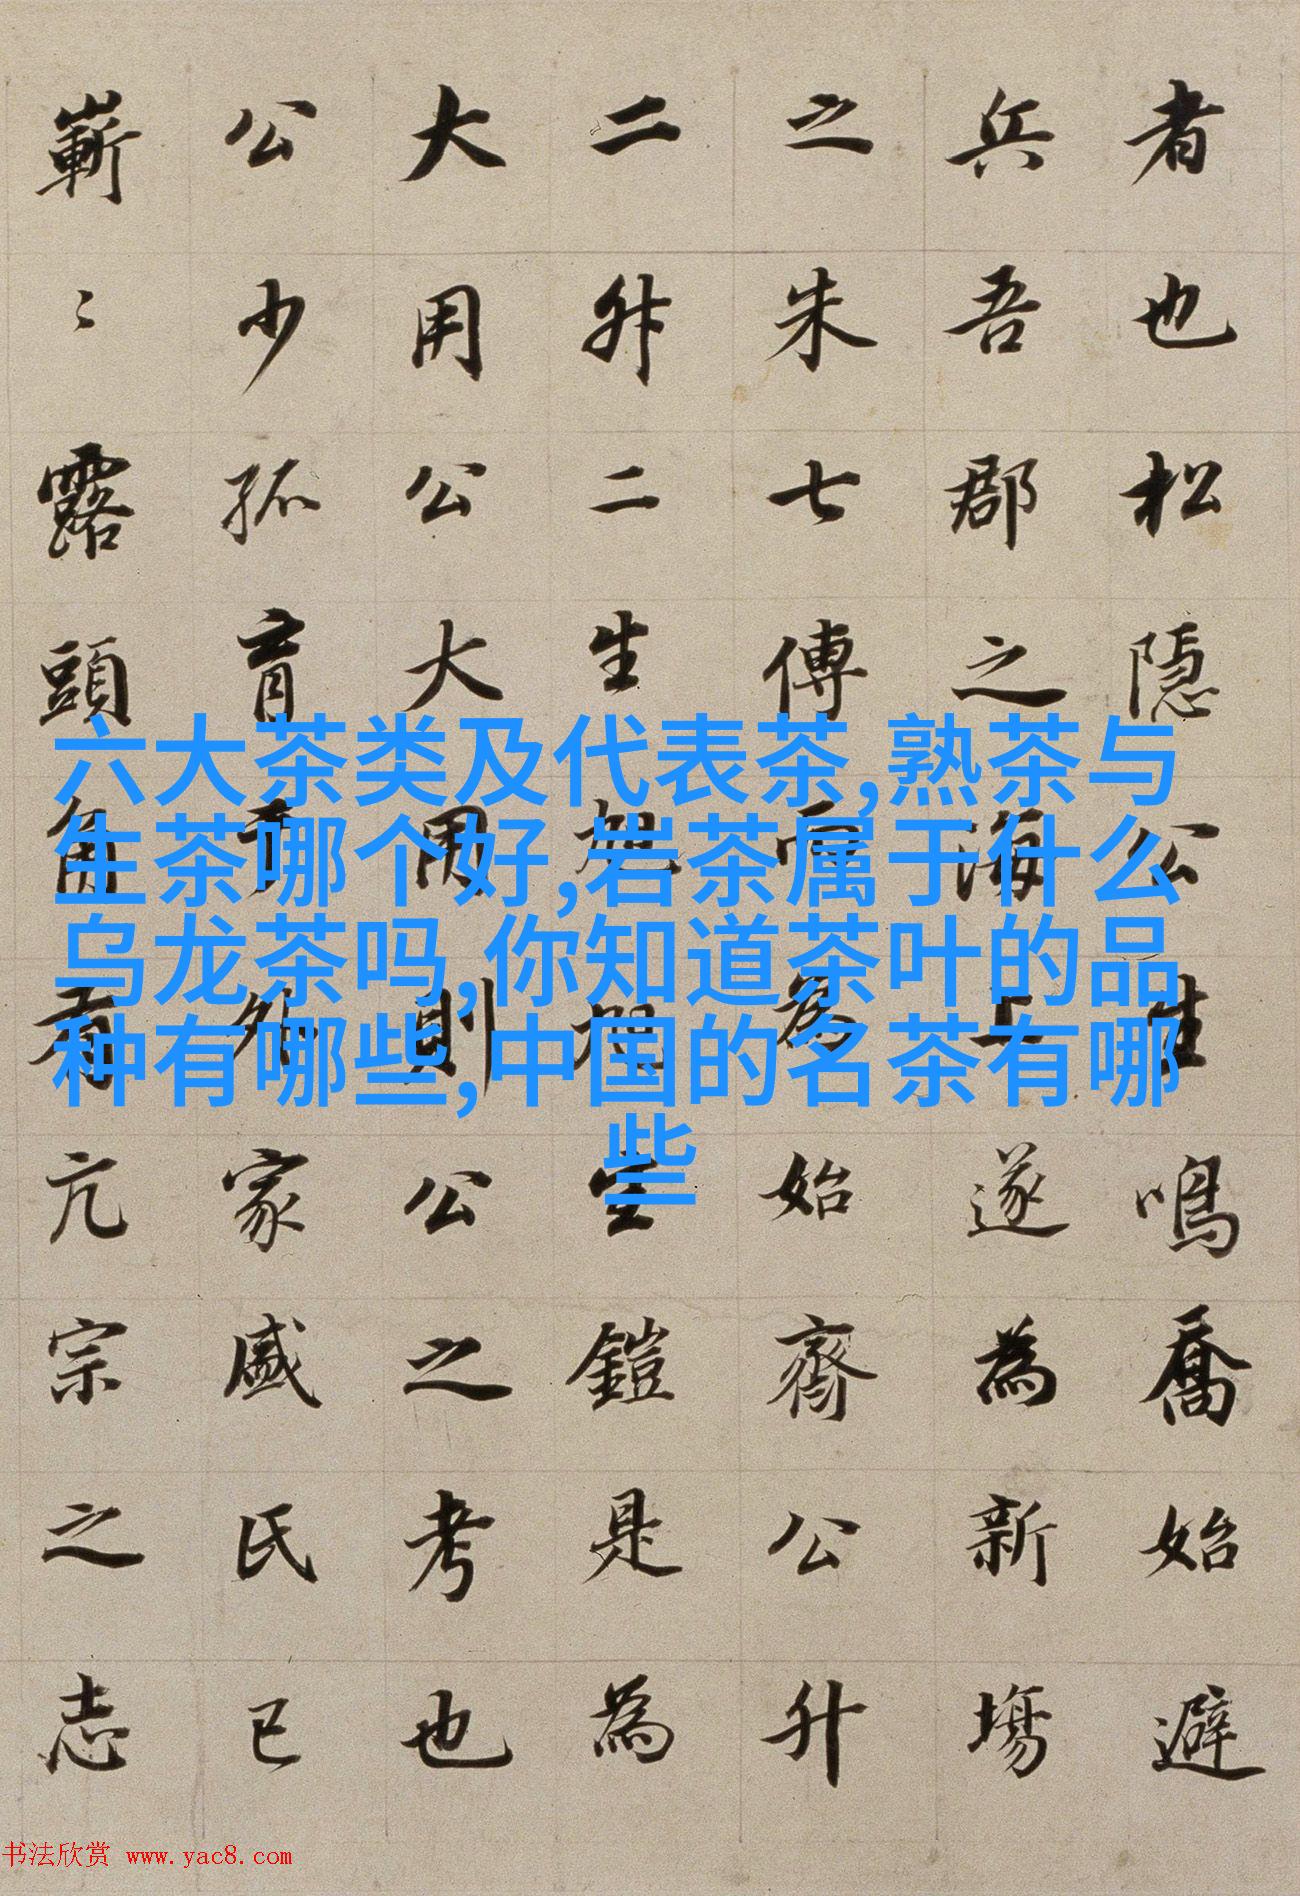 者也松隱公生鳴喬始避
兵吾郡之海上遂為新場
之朱七傳而為始齊公升
二升二生旭旭生鎧是為
大用公大用則公之考也
公少孤育于外家戚氏已
嶄〻露頭角有亢宗之志
六大茶类及代表茶,熟茶与
生茶哪个好,岩茶属于什么
乌龙茶吗,你知道茶叶的品
种有哪些,中国的名茶有哪
些
书法欣赏 www.yac8.com